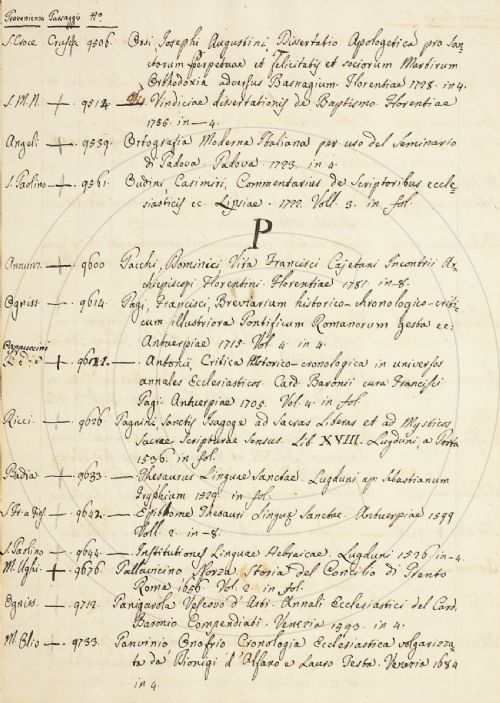 Provenienza Passaggio No
S. Croce Crusca 9506. Orsi Josephi Augustini Dissertatio Apologetica pro San-
ctorum Perpetuae et Felicitatis et sociorum Martirum
Orthodoxia adversus Basnagium. Florentiae 1728. in 4.
S. M. N. + 9512. — Vindiciae dissertationis de Baptismo. Florentiae
1735. in — 4.
Angeli + 9539. Ortografia Moderna Italiana per uso del Seminario
di Padova. Padova 1723. in 4.
S. Paolino + 9561. Oudini, Casimiri, Commentarius de Scriptoribus eccle-
siasticis ec. Lipsiae. 1722. Voll. 3. in fol.
P
Annunz. — + 9600 Pacchi, Dominici Vita Francisci Cajetani Incontrii Ar-
chiepiscopi Florentini. Florentiae 1781. in-8.
Ogniss. — + 9614. Pagi, Francisci, Breviarium historico-chronologico-criti-
cum illustriora Pontificum Romanorum gesta ec:
Antuerpiae 1715. Vol. 4. in 4.
Cappuccini
+ 9621. — . Antonii, Critica historico-cronologica in universos
annales Ecclesiasticos Card. Baronii cura Francisci
Pagi. Antuerpiae 1705. Vol. 4. in fol.
Ricci. — + 9626 Pagnini Sanctis Isagoge ad Sacras Literas et ad Mysticos
Sacrae Scripturae Sensus. Lib. XVIII. Lugduni, a Porta
1536. in fol.
Badia — + 9633. — Thesaurus Linguae Sanctae. Lugduni ap. Sebastianum
Gryphium 1529. in fol.
+ 9642. — Epithome Thesauri Linguae Sanctae. Antuerpiae 1599
Voll. 2. in-8.
S. Paolino + 9644. — Institutiones Linguae Hebraicae. Lugduni 1526 in-4.
M. Ughi. + 9676. Pallavicino Sforza Storia del Concilio di Trento
Roma 1656. Vol. 2. in fol.
Ogniss. — + 9712. Panigarola Vescovo d'Asti. Annali Ecclesiastici del Card.
Baronio Compendiati. Venezia 1593. in 4.
+ 9733. Panvinio Onofrio Cronologia Ecclesiastica volgarizza-
ta da Dionigi d'Alfano e Lauro Testa. Venezia 1684
in 4.